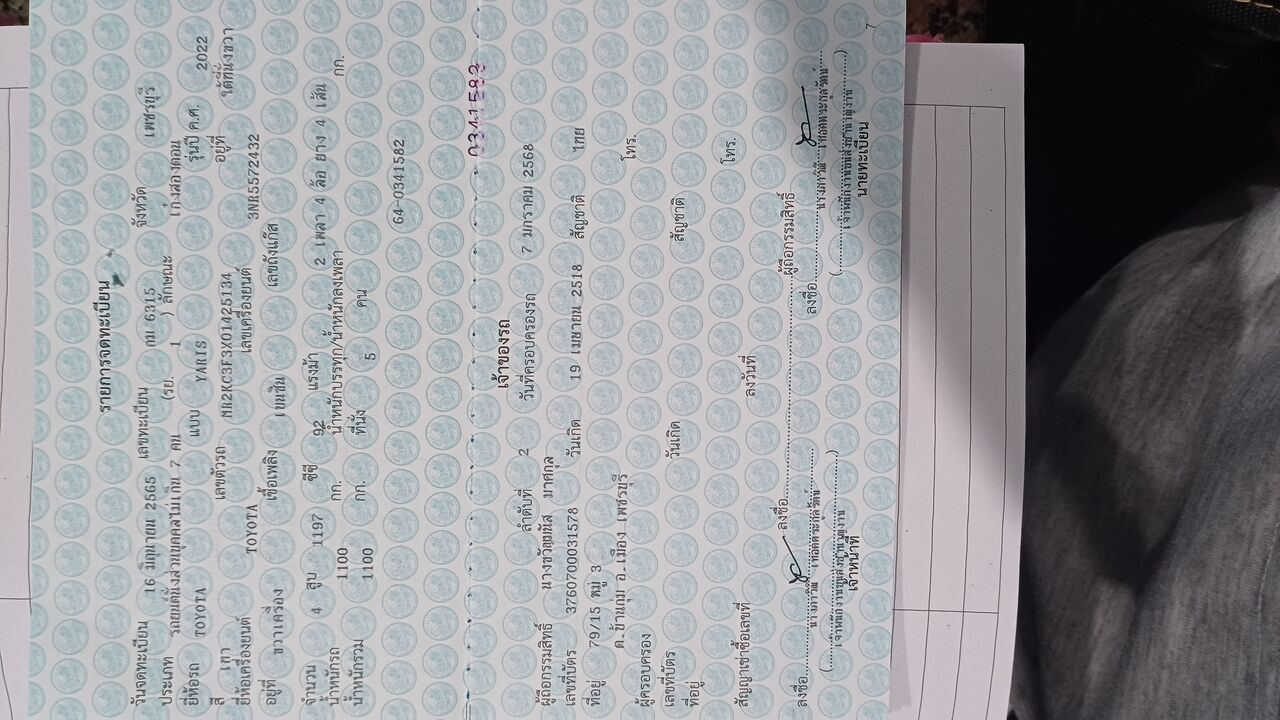 รายการจดทะเบียน
วันจดทะเบียน 16 มิถุนายน 2565 เลขทะเบียน กม 6315 จังหวัด เพชรบุรี
ประเภท รถยนต์นั่งส่วนบุคคลไม่เกิน 7 คน (รย. 1 ) ลักษณะ เก๋งสองตอน
ยี่ห้อรถ TOYOTA แบบ YARIS รุ่นปี ค.ศ. 2022
สี เทา เลขตัวรถ MR2KC3F3X01425134 อยู่ที่ ใต้ที่นั่งขวา
ยี่ห้อเครื่องยนต์ TOYOTA เลขเครื่องยนต์ 3NR5572432
อยู่ที่ ขวาเครื่อง เชื้อเพลิง เบนซิน เลขถังแก๊ส
จำนวน 4 สูบ 1197 ซีซี 92 แรงม้า 2 เพลา 4 ล้อ ยาง 4 เส้น
น้ำหนักรถ 1100 กก. น้ำหนักบรรทุก/น้ำหนักลงเพลา กก.
น้ำหนักรวม 1100 กก. ที่นั่ง 5 คน
64-0341582
0341582
เจ้าของรถ
ลำดับที่ 2 วันที่ครอบครองรถ 7 มกราคม 2568
ผู้ถือกรรมสิทธิ์ นางขวัญมนัส มาศกุล
เลขที่บัตร 3760700031578 วันเกิด 19 เมษายน 2518 สัญชาติ ไทย
ที่อยู่ 79/15 หมู่ 3
ต.บ้านกุ่ม อ.เมือง เพชรบุรี
โทร.
ผู้ครอบครอง
เลขที่บัตร วันเกิด สัญชาติ
ที่อยู่
โทร.
สัญญาเช่าซื้อเลขที่ ลงวันที่
ลงชื่อ ลงชื่อ ผู้ถือกรรมสิทธิ์
ลงชื่อ
(เจ้าพนักงานขนส่งชำนาญงาน) (เจ้าพนักงานขนส่งชำนาญงาน)
เจ้าหน้าที่ นายทะเบียน
7